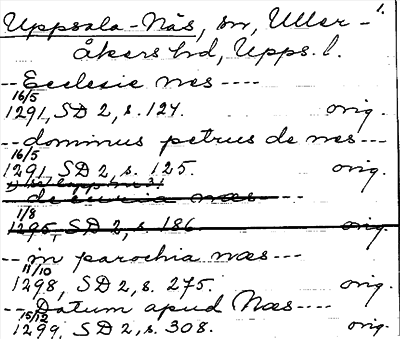 Uppsala-Näs, sn, Uller- 1.
åkers hd, Upps. l.
-- Ecclesie næs ----
16/5
1291, SD 2, s. 124. orig.
-- dominus petrus de næs ---
16/5
1291, SD 2, s. 125. orig.
-- de curia næs ----
1/8
1295, SD 2, s. 186. orig.
-- in parochia næs ---
11/10
1298, SD 2, s. 275. orig.
-- Datum apud Næs ----
15/12
1299, SD 2, s. 308. orig.